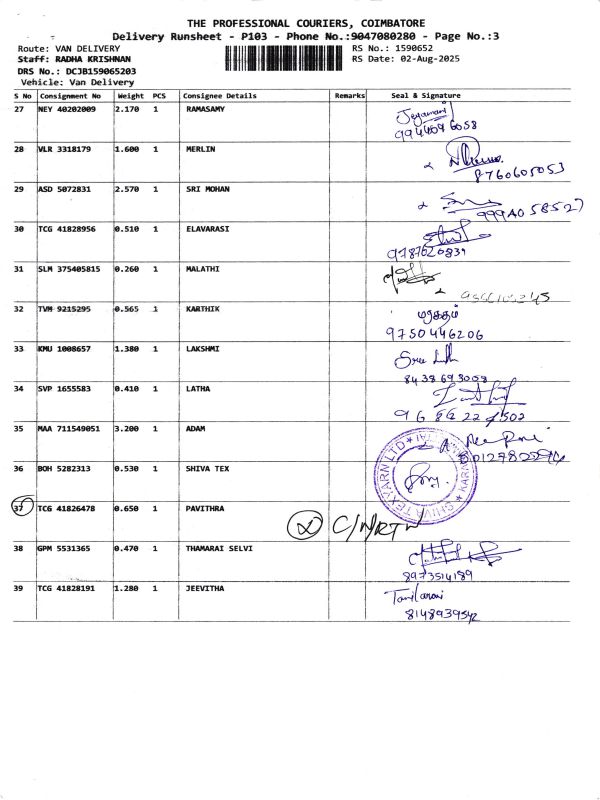 THE PROFESSIONAL COURIERS, COIMBATORE
Delivery Runsheet - P103 - Phone No.:9047080280 - Page No.:3
Route: VAN DELIVERY RS No.: 1590652
Staff: RADHA KRISHNAN RS Date: 02-Aug-2025
DRS No.: DCJB159065203
Vehicle: Van Delivery
S No Consignment No Weight PCS Consignee Details Remarks Seal & Signature
27 NEY 40202009 2.170 1 RAMASAMY Jeyamani
28 VLR 3318179 1.600 1 MERLIN
8760605053
29 ASD 5072831 2.570 1 SRI MOHAN
9994058527
30 TCG 41828956 0.510 1 ELAVARASI
9787020839
31 SLM 375405815 0.260 1 MALATHI
32 TVM 9215295 0.565 1 KARTHIK
9750446206
33 KMU 1008657 1.380 1 LAKSHMI
8438693008
34 SVP 1655583 0.410 1 LATHA
35 MAA 711549051 3.200 1 ADAM
36 BOH 5282313 0.530 1 SHIVA TEX
SHIVA TEXYARN LTD
37 TCG 41826478 0.650 1 PAVITHRA
38 GPM 5531365 0.470 1 THAMARAI SELVI
8973514189
39 TCG 41828191 1.280 1 JEEVITHA
8148939542